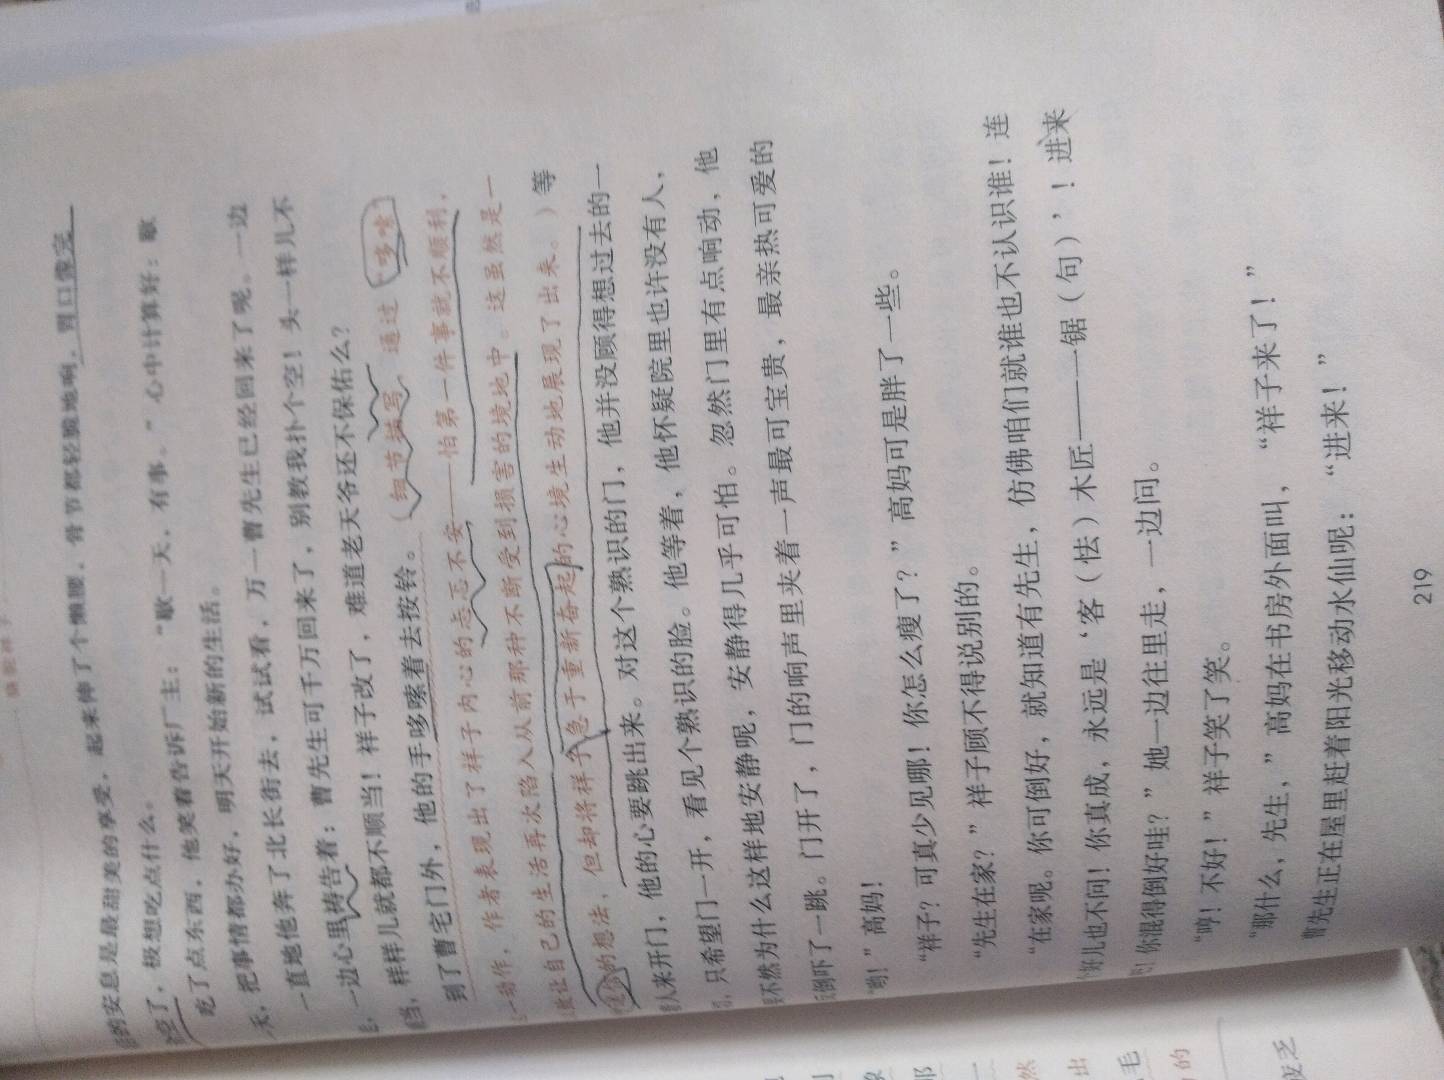 骆驼祥子
的安息是最甜美的享受，起来伸了个懒腰，骨节都轻脆地响，胃口像完
空了，极想吃点什么。
吃了点东西，他笑着告诉厂主：“歇一天，有事。”心中计算好：歇
天，把事情都办好，明天开始新的生活。
一直地他奔了北长街去，试试看，万一曹先生已经回来了呢。一边
，一边心里祷告着：曹先生可千万回来了，别教我扑个空！头一样儿不
当，样样儿就都不顺当！祥子改了，难道老天爷还不保佑么？
到了曹宅门外，他的手哆嗦着去按铃。（细节描写，通过“哆嗦”
一动作，作者表现出了祥子内心的忐忑不安——怕第一件事就不顺利，
让自己的生活再次陷入从前那种不断受到损害的境地中。这虽然是一
的想法，但却将祥子急于重新奋起的心境生动地展现了出来。）等
人来开门，他的心要跳出来。对这个熟识的门，他并没顾得想过去的一
，只希望门一开，看见个熟识的脸。他等着，他怀疑院里也许没有人，
不然为什么这样地安静呢，安静得几乎可怕。忽然门里有点响动，他
倒吓了一跳。门开了，门的响声里夹着一声最可宝贵，最亲热可爱的
“哟！”高妈！
“祥子？可真少见哪！你怎么瘦了？”高妈可是胖了一些。
“先生在家？”祥子顾不得说别的。
“在家呢。你可倒好，就知道有先生，仿佛咱们就谁也不认识谁！连
好儿也不问！你真成，永远是‘客（怯）木匠——一锯（句）’！进来
吧！你混得倒好哇？”她一边往里走，一边问。
“哼！不好！”祥子笑了笑。
“那什么，先生，”高妈在书房外面叫，“祥子来了！”
曹先生正在屋里赶着阳光移动水仙呢：“进来！”
219
那
一
然
出
毛
的
乏